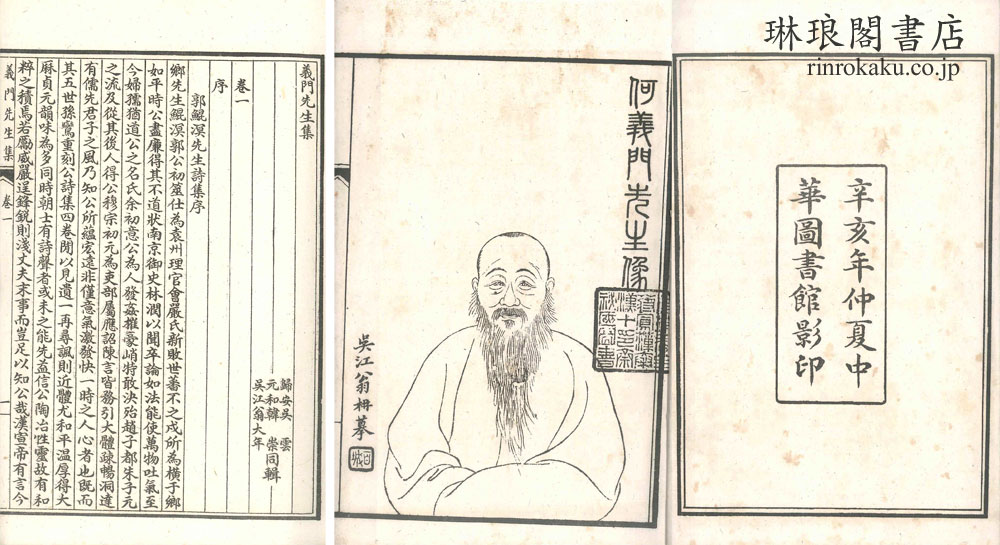 琳琅閣書店
rinrokaku.co.jp
辛亥年仲夏中
華圖書館影印
何義門先生像
吳江翁栴摹
義門先生集
卷一
歸安吳 雲
元和韓 崇同輯
吳江翁大年
序
郭鯤溟先生詩集序
鄉先生鯤溟郭公初筮仕為袁州理官會嚴氏新敗世蕃不之戍所為橫于鄉
如平時公盡廉得其不道狀南京御史林潤以聞卒論如法能使萬物吐氣至
今婦孺猶道公之名氏余初意公為人發姦摧豪峭特敢決殆趙子都朱子元
之流及從其後人得公穆宗初元為吏部屬應詔陳言皆務引大體疎暢洞達
有儒先君子之風乃知公所蘊宏遠非僅意氣激發快一時之人心者也既而
其五世孫鸞重刻公詩集四卷閒以見遺一再尋諷則近體尤和平温厚得大
厤貞元韻味為多同時朝士有詩聲者或未之能先益信公陶冶性靈故有和
粹之積焉若勵威嚴逞鋒銳則淺丈夫末事而豈足以知公哉漢宣帝有言今
義門先生集 卷一